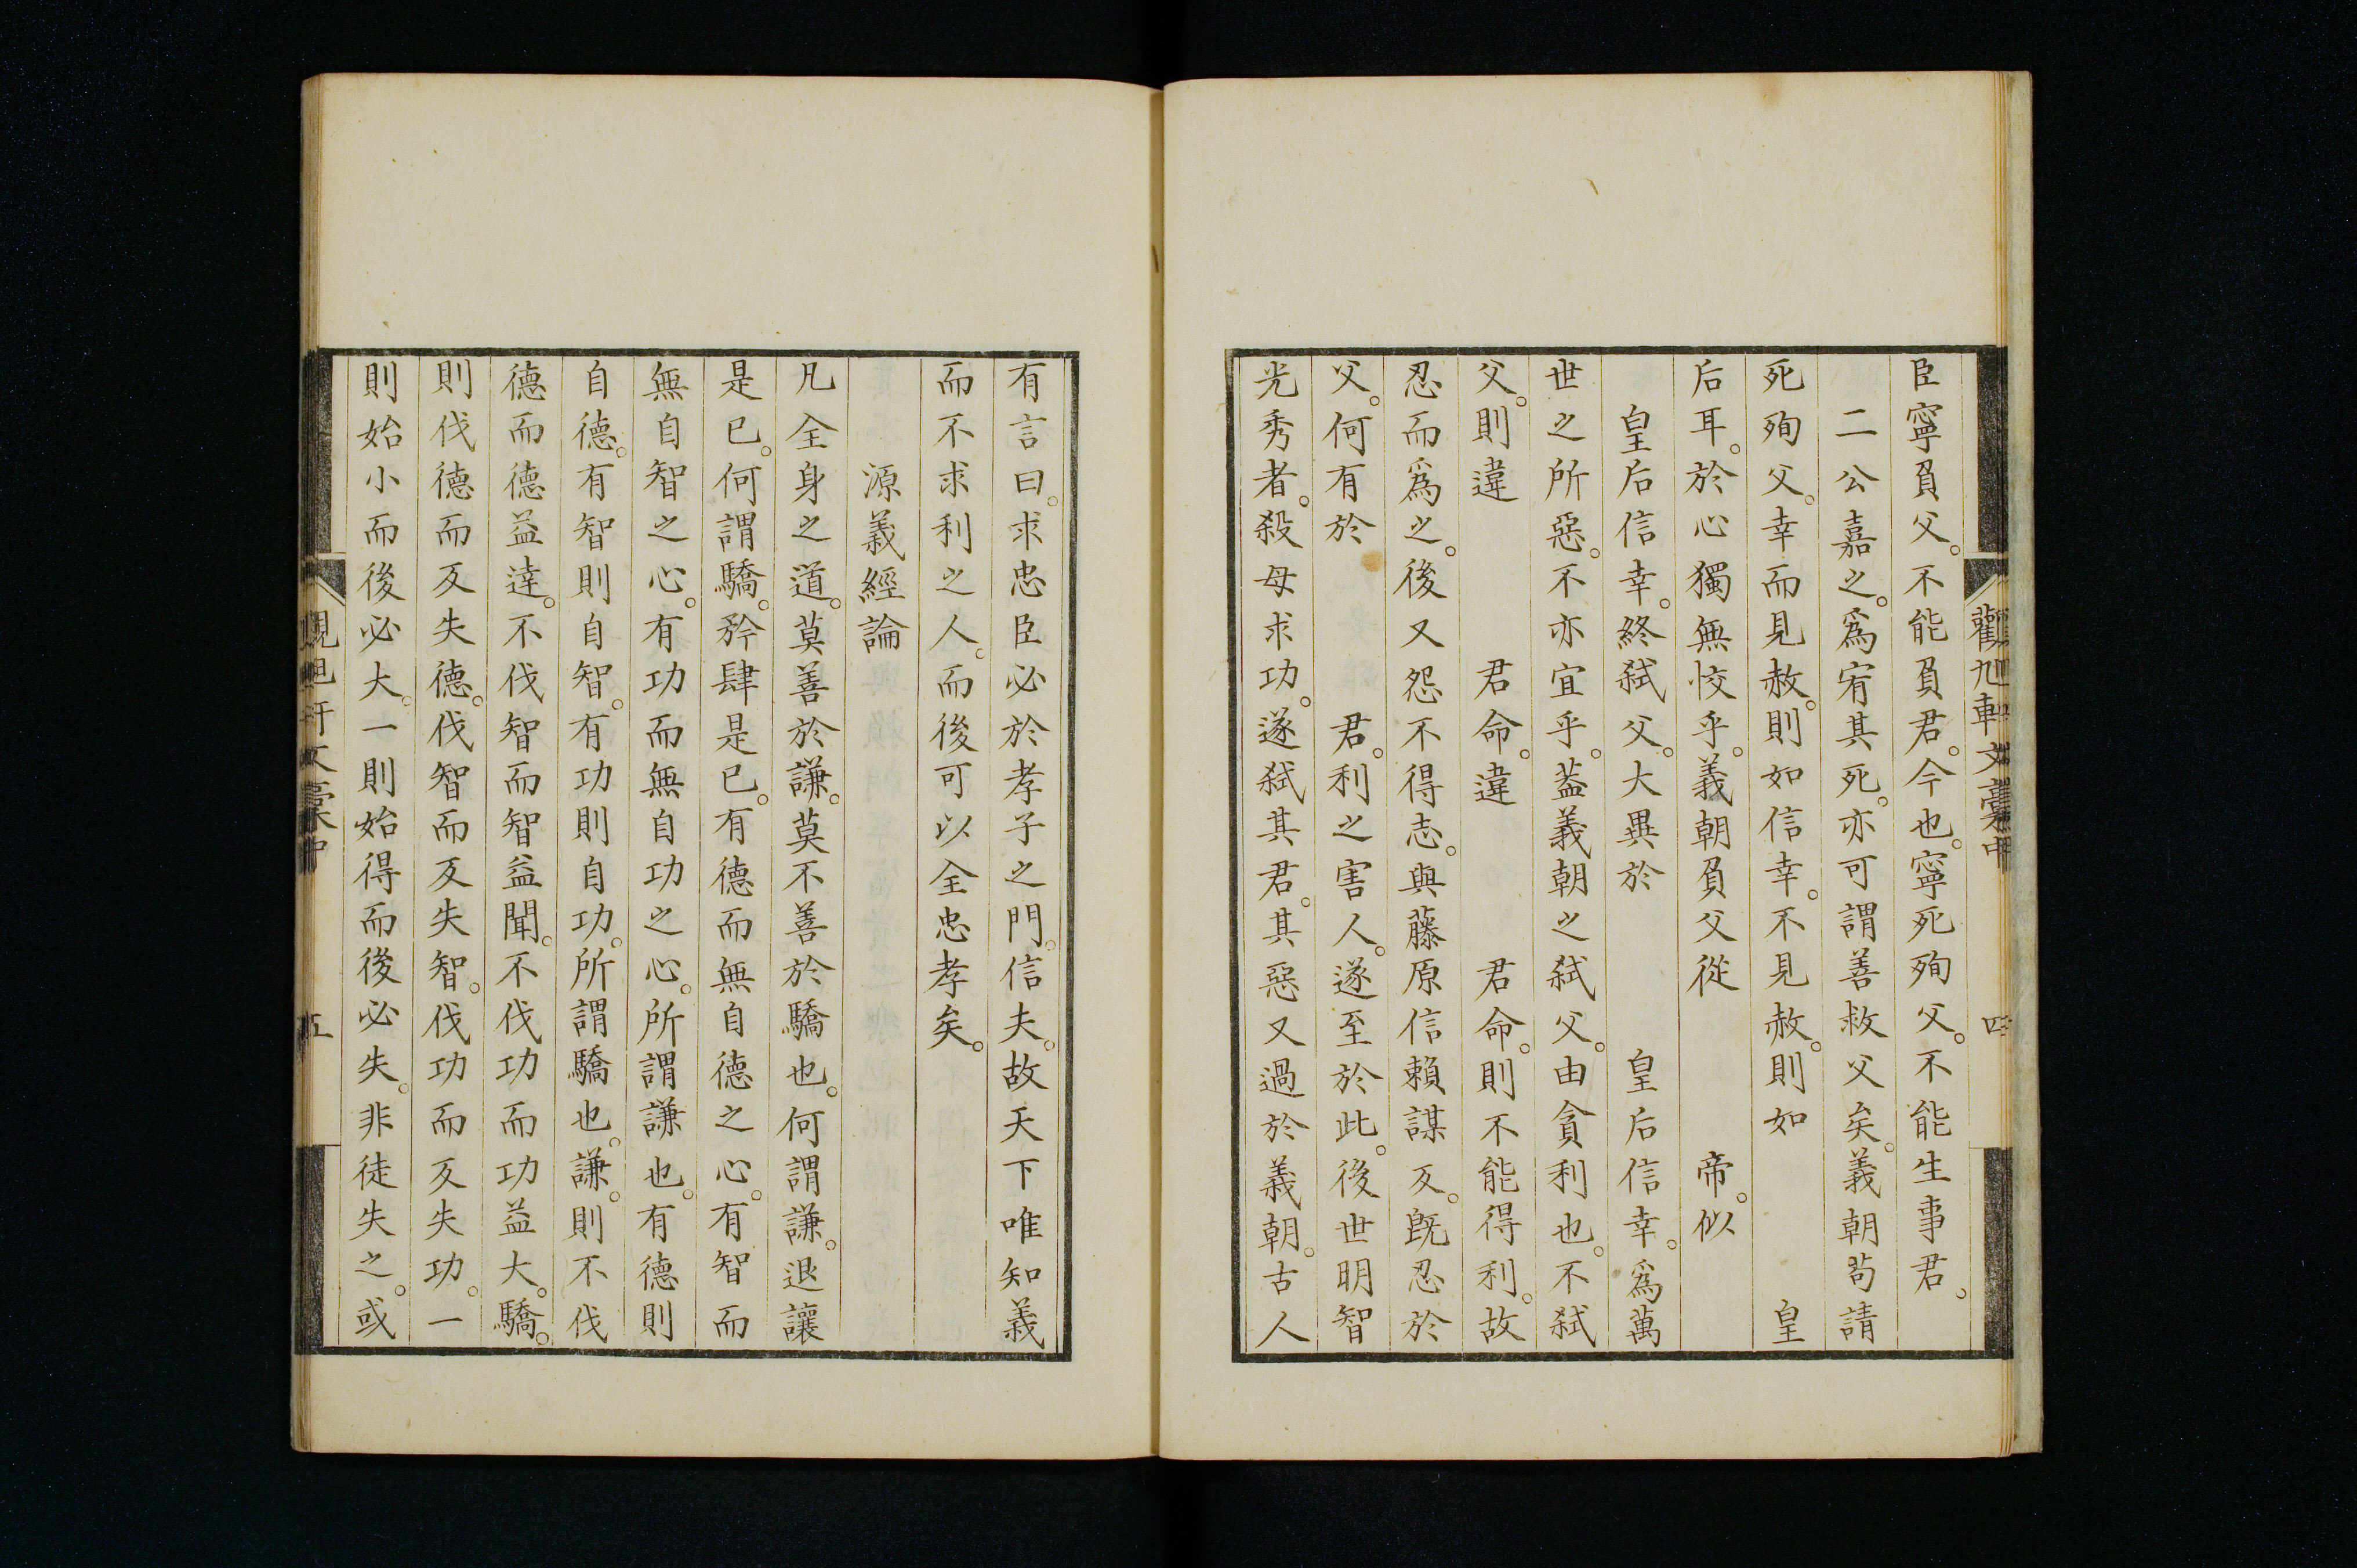 觀旭軒文稾中 四
臣寧負父。不能負君。今也。寧死殉父。不能生事君。
二公嘉之。爲宥其死。亦可謂善救父矣。義朝苟請
死殉父。幸而見赦。則如信幸。不見赦。則如 皇
后耳。於心獨無恔乎。義朝負父從 帝。似
皇后信幸。終弑父。大異於 皇后信幸。爲萬
世之所惡。不亦宜乎。葢義朝之弑父。由貪利也。不弑
父。則違 君命。違 君命。則不能得利。故
忍而爲之。後又怨不得志。與藤原信賴謀反。既忍於
父。何有於 君。利之害人。遂至於此。後世明智
光秀者。殺母求功。遂弑其君。其惡又過於義朝。古人
有言曰。求忠臣必於孝子之門。信夫。故天下唯知義
而不求利之人。而後可以全忠孝矣。
源義經論
凡全身之道。莫善於謙。莫不善於驕也。何謂謙。退讓
是已。何謂驕。矜肆是已。有德而無自德之心。有智而
無自智之心。有功而無自功之心。所謂謙也。有德則
自德。有智則自智。有功則自功。所謂驕也。謙。則不伐
德而德益達。不伐智而智益聞。不伐功而功益大。驕。
則伐德而反失德。伐智而反失智。伐功而反失功。一
則始小而後必大。一則始得而後必失。非徒失之。或
文稾中 五